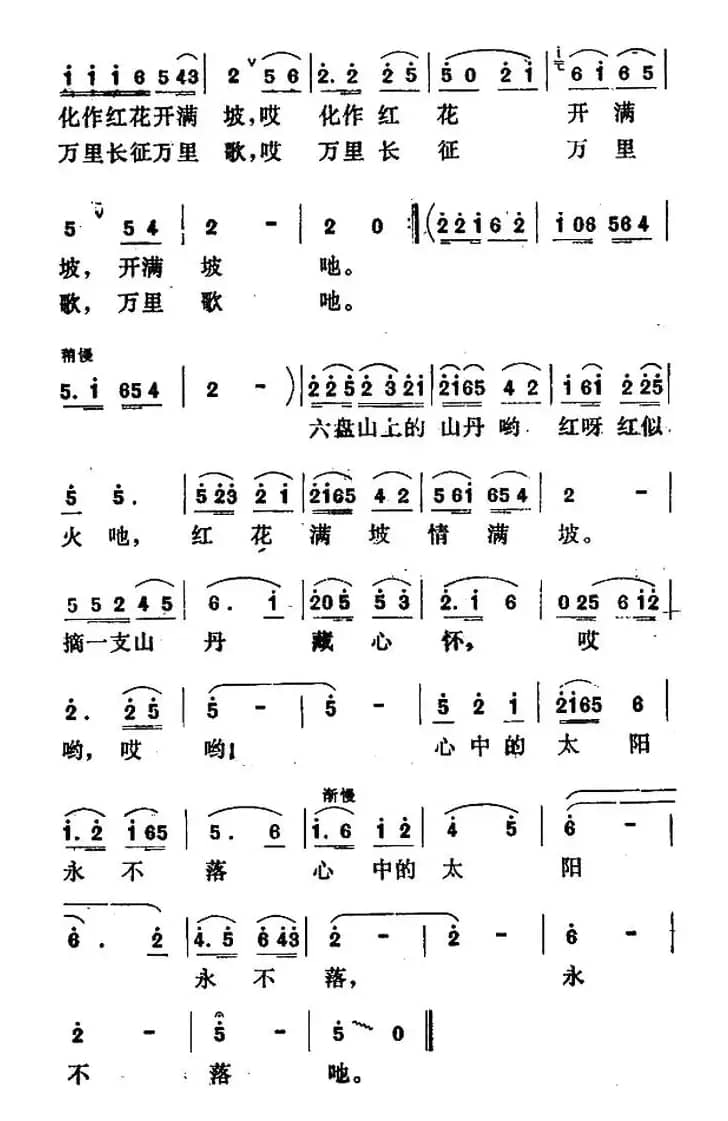 1 1 1 6 5 4 3 | 2 5 6 | 2. 2 2 5 | 5 0 2 1 | 6 1 6 5
化作红花开满 坡,哎 化作红 花 开 满
万里长征万里 歌,哎 万里长 征 万 里
5 5 4 | 2 - | 2 0 :‖ ( 2 2 1 6 2 | 1 0 6 5 6 4 |
坡, 开满 坡 吔。
歌, 万里 歌 吔。
稍慢
5. 1 6 5 4 | 2 - ) | 2 2 5 2 3 2 1 | 2 1 6 5 4 2 | 1 6 1 2 2 5 |
六盘山上的 山丹 哟 红呀 红似
5 5. | 5 2 3 2 1 | 2 1 6 5 4 2 | 5 6 1 6 5 4 | 2 - |
火 吔, 红 花 满 坡 情 满 坡。
5 5 2 4 5 | 6. 1 | 2 0 5 5 3 | 2. 1 6 | 0 2 5 6 1 2
摘一支山 丹 藏 心 怀, 哎
2. 2 5 | 5 - | 5 - | 5 2 1 | 2 1 6 5 6
哟, 哎 哟! 心 中 的 太 阳
渐慢
1. 2 1 6 5 | 5. 6 | 1. 6 1 2 | 4 5 | 6 -
永 不 落 心 中的 太 阳
6. 2 | 4. 5 6 4 3 | 2 - | 2 - | 6 - |
永 不 落, 永
2 - | 5 - | 5 0 ‖
不 落 吔。